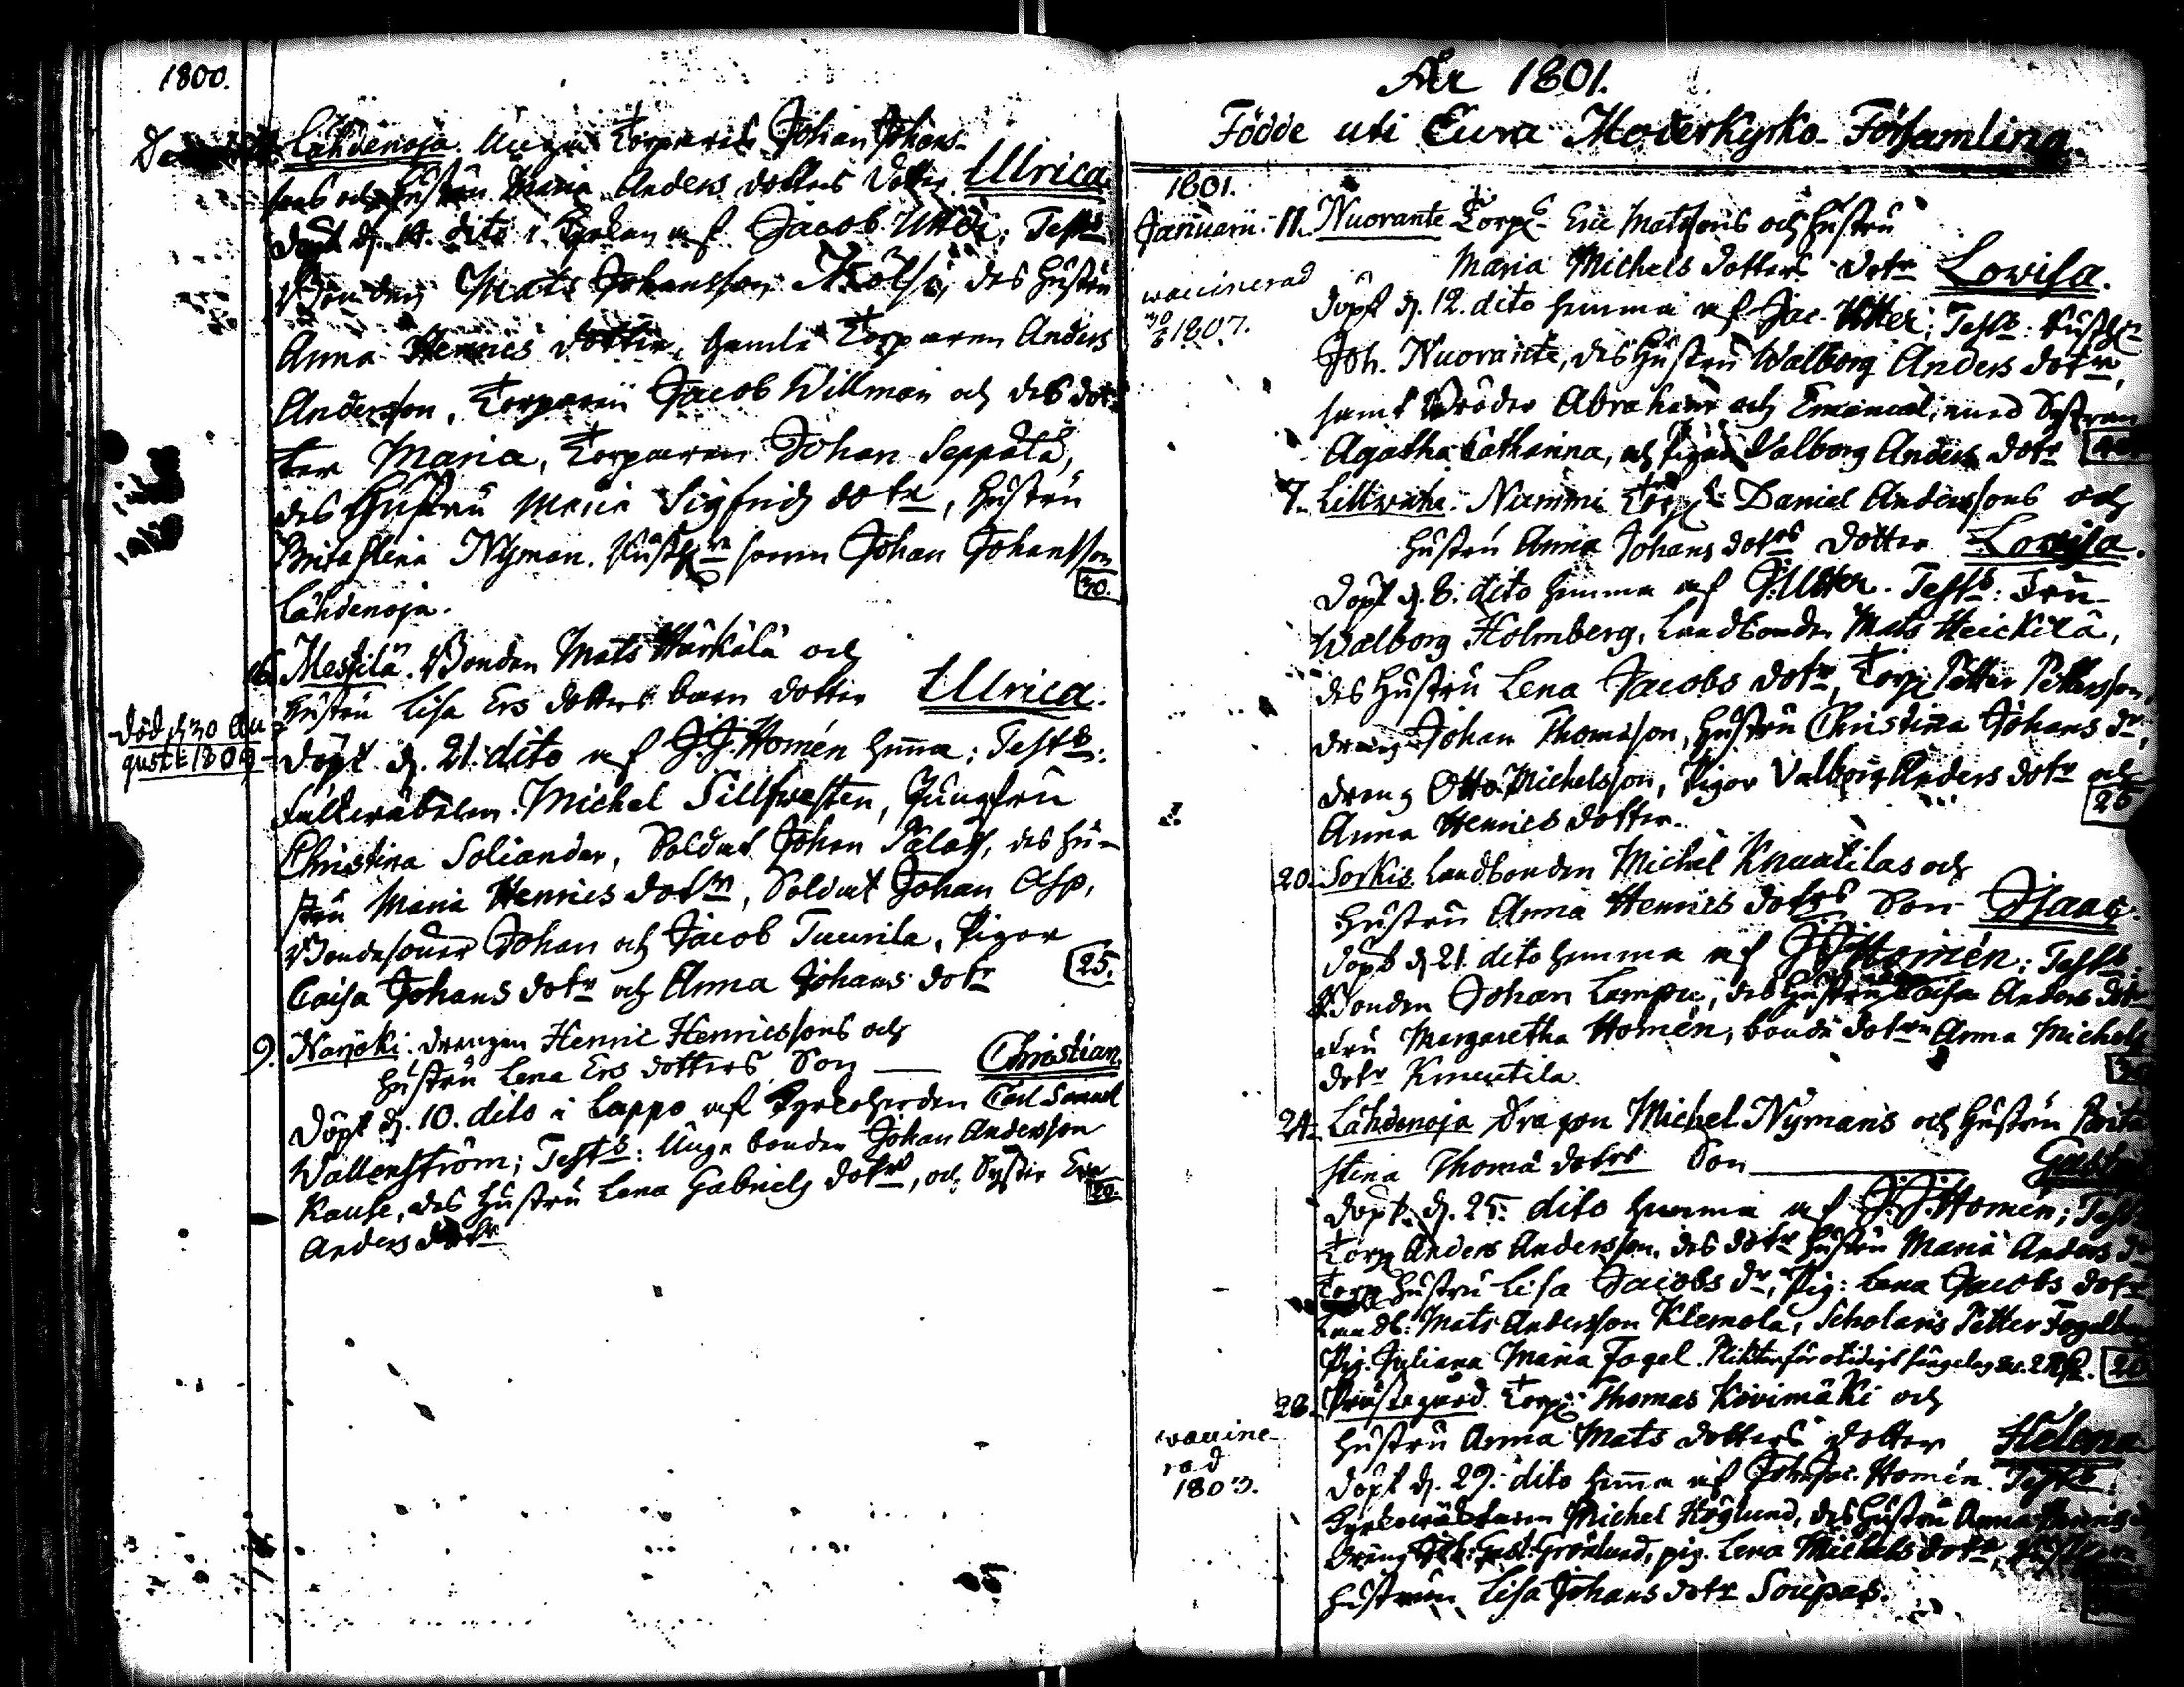 1800.
Lähdenoja. Unga Torparen Johan Johans-
sons och Hustru Maria Anders dotters dotter Ulrica.
döpt d. 14. dito i Kyrkan af Jacob Utter; Test:s
Bonden Mats Johansson Kölsi, des Hustru
Anna Henrics dotter, Gamle Torparen Anders
Andersson, Torparen Jacob Willman och des dot-
ter Maria, Torparen Johan Seppälä,
des Hustru Maria Sigfrids dotr, Hustru
Brita Stina Nyman. Rusth:re sonen Johan Johansson
Lähdenoja. 30.
16. Mestilä. Bonden Mats Härkälä och
Hustru Lisa Ers dotters barn dotter Ulrica.
död d 30 Au
gusti 1809
döpt d. 21. dito af J.J. Homén hema; Test:s:
Fältwäbelen Michel Sillfwesten, Jungfru
Christina Soliander, Soldat Johan Palas, des Hu-
stru Maria Henrics dotr, Soldat Johan Asp,
Bondesöner Johan och Jacob Tuurila, Pigor
Caisa Johans dotr och Anna Johans dotr 25.
9. Narjöki. drengen Henric Henricssons och
Hustru Lena Ers dotters Son — Christian.
döpt d. 10. dito i Lappo af Kyrkoherden Carl Samuel
Wallenström; Test:s: Unge bonden Johan Andersson
Kause, des Hustru Lena Gabriels dotr, och Syster
Anders dotr
År 1801.
Födde uti Eura Moderkyrko-Församling.
1801.
Januarii. 11. Nuorante Torp:s Eric Matssons och Hustru
Maria Michels dotters dotr Lovisa.
waccinerad
1807.
döpt d. 12. dito hemma af Jac. Utter; Test:s: Rusth:r
Joh. Nuorante, des Hustru Walborg Anders dotr,
samt Bröder Abraham och Emanuel, med Systran
Agatha Catharina, och Pigan Valborg Anders dotr
7. Lillwahe. Nummi Torp:s Daniel Anderssons och
Hustru Anna Johans dotrs dotter Lovisa.
döpt d. 8. dito hemma af J. Utter. Test:s: Fru
Walborg Holmberg, Landbonden Mats Heickilä,
des Hustru Lena Jacobs dotr, Torp: Petter Pettersson,
dreng Johan Thomasson, Hustru Christina Johans dr,
dreng Otto Michelsson, Pigor Valborg Anders dotr och
Anna Henrics dotter. 25
20. Sorkis Landbonden Michel Knuutilas och
Hustru Anna Henrics dotrs Son Isaac.
döpt d. 21. dito hemma af J.J. Homén; Test:s:
Bonden Johan Lampu, des Hustru Caisa Anders dotr
Fru Margaretha Homén, bonde dotren Anna Michels
dotr Knuutila.
24. Lähdenoja Dragon Michel Nymans och Hustru Brita
Stina Thomä dotrs Son —
döpt d. 25. dito hemma af J.J. Homén; Test:
Torp: Anders Andersson, des dotr Hustru Maria Anders dr
Torp: Hustru Lisa Jacobs dr, Pig: Lena Jacobs dotr
Landb: Mats Andersson Klemola, Scholaris Petter
Pig. Juliana Maria Fogel.
28. Prästegård. Torp: Thomas Kivimäki och
Hustru Anna Mats dotters dotter Helena
waccine-
rad
1803.
döpt d. 29. dito hema af Joh. Jac. Homén. Test:s:
Kyrkowäktaren Michel Höglund, des Hustru Anna
dreng Joh: Gust: Grönlund, pig. Lena Michels dotr,
Hustrun Lisa Johans dotr Soupas.